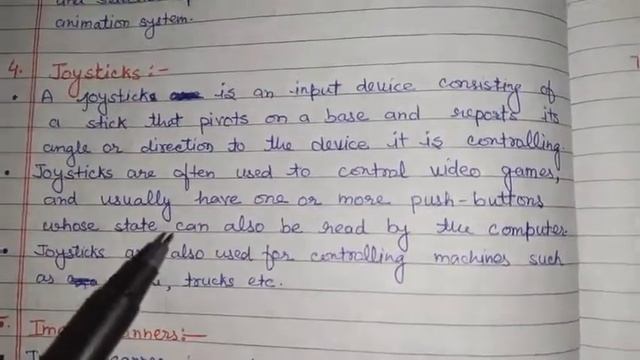 animation system.
4. Joysticks:-
• A joysticks is an input device consisting of
a stick that pivots on a base and reports its
angle or direction to the device it is controlling.
• Joysticks are often used to control video games,
and usually have one or more push-buttons
whose state can also be read by the computer.
• Joysticks also used for controlling machines such
as trucks etc.
7